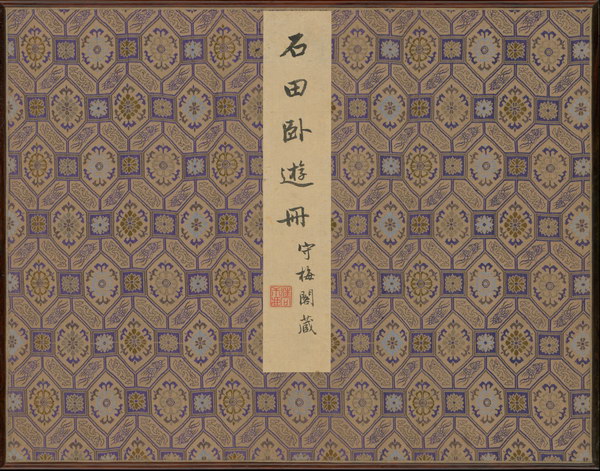 石田卧遊冊
守梅閣藏